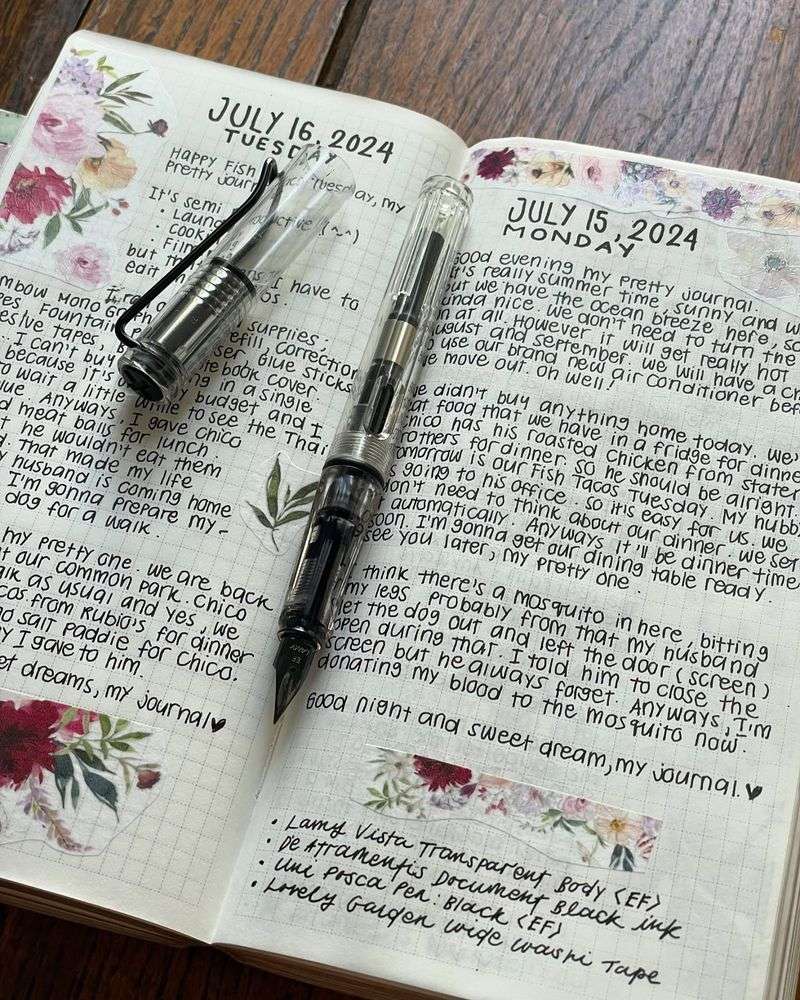 JULY 16, 2024
TUESDAY
Happy Fish tuesday, my
pretty journ
It's semi productive !(~^)
• Laund
• Cook
• Film
but th I have to
edit os.
mbow Mono G supplies.
pes. Fountain efill correction
es/ve tapes. ser. Blue sticks
... I can't buy tebook cover.
because it's ng in a single
to wait a little while budget and I
ue. Anyways, I gave Chico to see the Thai
d meat balls for lunch.
t he wouldn't eat them
. That made my life
y husband is coming home
. I'm gonna prepare my
dog for a walk.
my pretty one. we are back
at our common park. Chico
alk as usual and yes, we
cos from Rubio's for dinner
nd salt paddie for Chico.
y I gave to him.
et dreams, my journal♥
JULY 15, 2024
MONDAY
Good evening my pretty journal.
It's really summer time, sunny and w
ut we have the ocean breeze here, so
inda nice. we don't need to turn the
n at all. However it will get really hot
ugust and september. we will have a ch
o use our brand new air conditioner bef
e move out. oh well!
e didn't buy anything home today. we
eat food that we have in a fridge for dinne
hico has his roasted chicken from stater
rothers for dinner. so he should be alright.
omorrow is our Fish Tacos Tuesday. My hubb
s going to his office. so it's easy for us. we
on't need to think about our dinner. we set
automatically. Anyways it'll be dinner time
soon. I'm gonna get our dining table ready.
see you later, my pretty one.
think there's a mosquito in here, bitting
my legs probably from that my husband
let the dog out and left the door (screen)
open during that. I told him to close the
screen but he always forget. Anyways, I'm
donating my blood to the mosquito now.
Good night and sweet dream, my journal.♥
• Lamy Vista Transparent Body <EF>
• De Atramentis Document Black ink
• Uni Posca Pen: Black <EF>
• Lovely Garden wide washi Tape